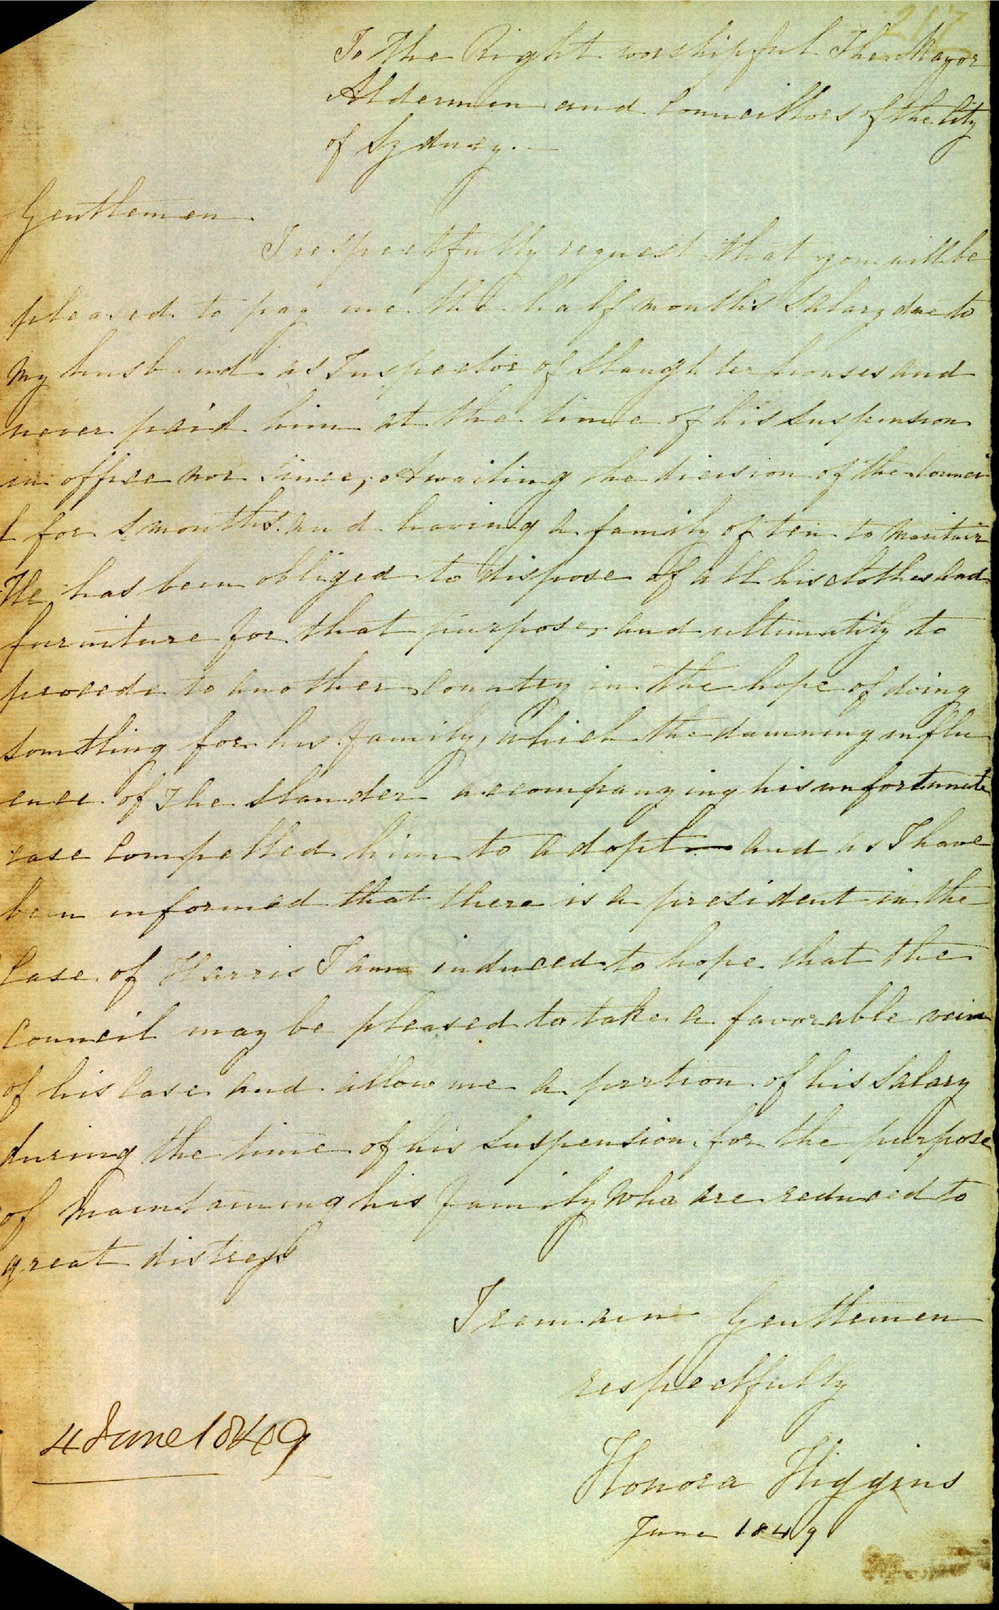 217
To The Right worshipful The Mayor
Aldermen and Councillors of the City
of Sydney.—
Gentlemen
I respectfully request that you will be
pleased to pay me the half months salary due to
My husband as Inspector of Slaughter houses and
never paid him at the time of his suspension
in office nor since, Awaiting the dicision of the Counci
l for 5 months and having a family of ten to maintain
He has been obliged to dispose of all his clothes and
furniture for that purpose, and ultimatily to
procede to another Country in the hope of doing
something for his family, which the damning influ
ence of the slander accompanying his unfortunate
case compelled him to adopt— and as I have
been informed that there is a president in the
Case of Harris I am induced to hope that the
Council may be pleased to take a favorable veiw
of his case and allow me a portion of his salary
during the time of his suspension for the purpose
of maintaining his family who are reduced to
great distress
I remain Gentlemen
respectfully
4 June 1849
Honora Higgins
June 1849